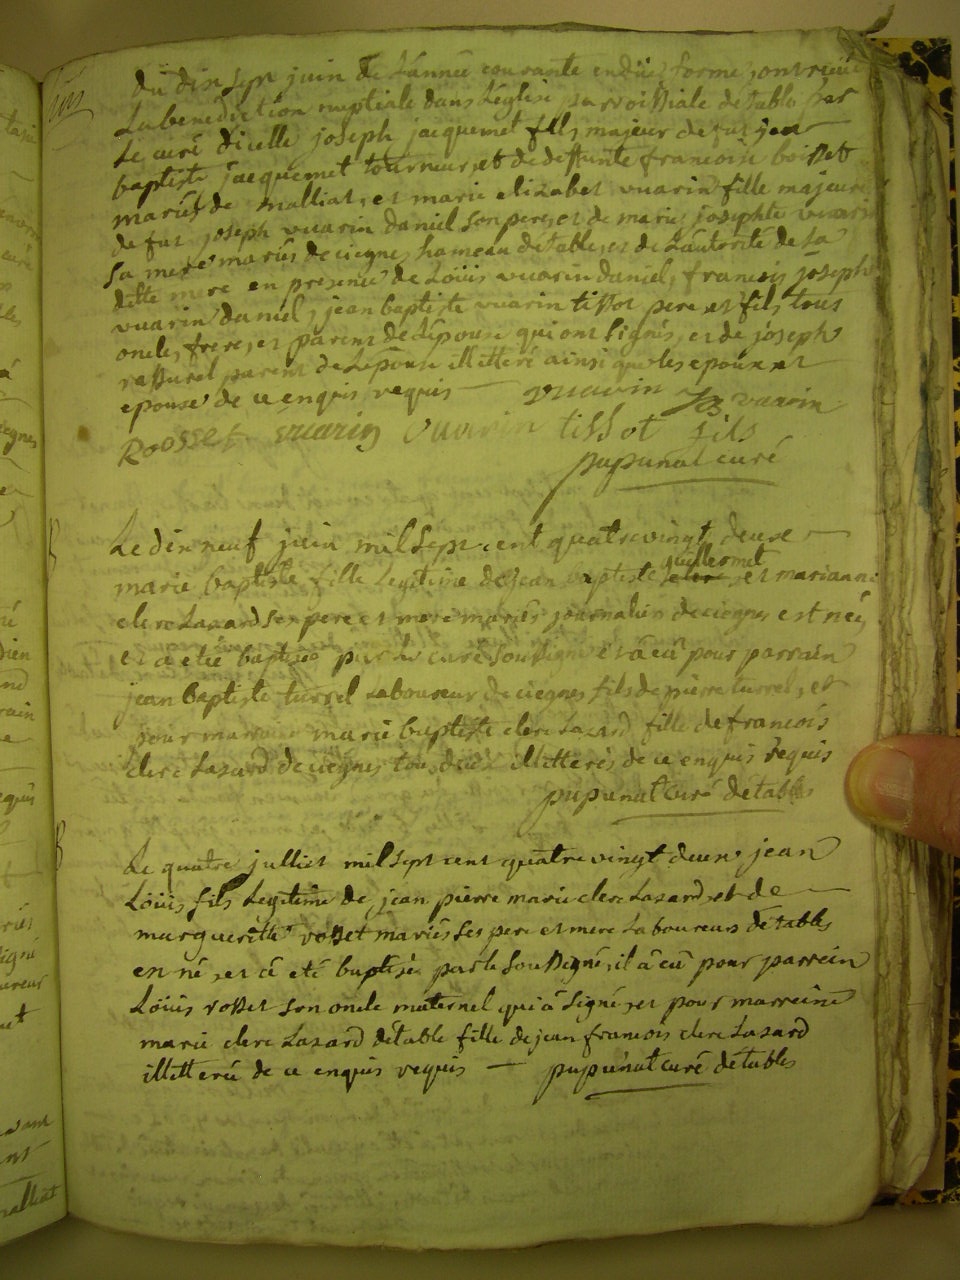 du dix sept juin de L'année courante en düe forme, ont reçu
La benediction nuptiale dans L'église parroissiale detable par
Le curé dicelle joseph jacquemet fils majeur de fut jean
baptiste jacquemet tourneur, et de deffunte francoise boisset
mariés de malliat, et marie elizabet vuarin fille majeure
de fut joseph vuarin daniel son pere, et de marie josephte vuarin
sa mere mariés de ciegne, hameau detable, et de L'autorité de sa
ditte mere en presence de Löüis vuarin daniel, francois joseph
vuarin daniel, jean baptiste vuarin tissot pere et fils tous
oncle, frere, et parent de L'épouse qui ont signés, et de joseph
rassurel parent de L'epouse illitteré ainsi que les epoux et
epouse de ce enquis requis — vuarin Jo vuarin
Rosset vuarin vuarin tissot fils
pupunat curé
Le dix neuf juin mil sept cent quatrevingt deux
guillermet
marie baptiste fille Legitime de jean baptiste et marianne
clerc Lazard ses pere et mere mariés journalier de ciegnes est née
et a etée baptisée par le curé soussigné et à eû pour parrain
jean baptiste turrel Laboureur de ciegnes fils de pierre turrel, et
pour marraine marie baptiste clerc Lazard fille de francois
clerc Lazard de ciegnes tous deux illitterés de ce enquis requis
pupunat curé detables
Le quatre julliet mil sept cent quatre vingt deux jean
Löüis fils Legitime de jean pierre marie clerc Lazard, et de
marguerite rosset mariés ses pere et mere Laboureurs detables
en né, et à eté baptisée par le soussigné, il à eû pour parrein
Löüis rosset son oncle maternel qui à signé, et pour marreine
marie clerc Lazard détable fille de jean francois clerc Lazard
illitteré de ce enquis requis — pupunat curé detables